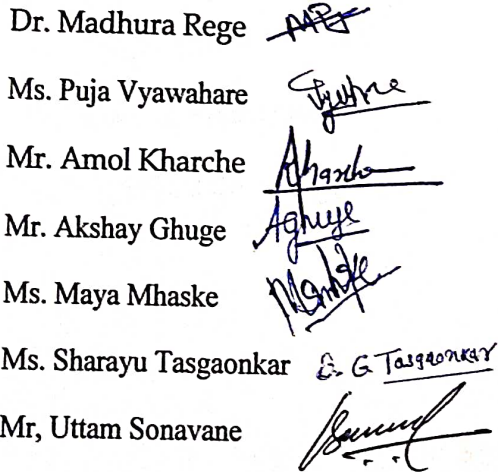 Dr. Madhura Rege
Ms. Puja Vyawahare
Mr. Amol Kharche AKharche
Mr. Akshay Ghuge Aghuge
Ms. Maya Mhaske
Ms. Sharayu Tasgaonkar S. G Tasgaonkar
Mr, Uttam Sonavane